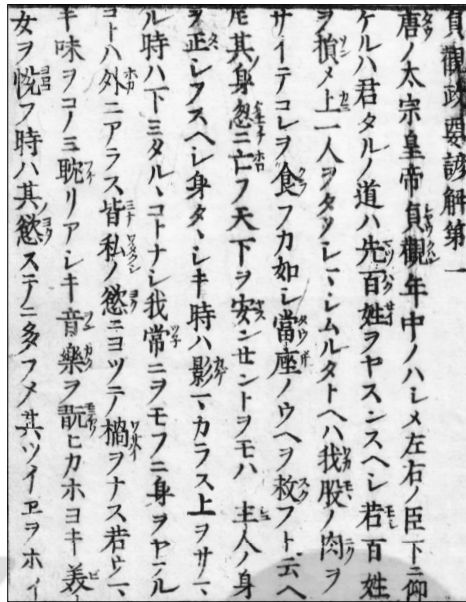 貞觀政要諺解第一
唐ノ太宗皇帝貞觀年中ノハシメ左右ノ臣下ニ仰
ケルハ君タルノ道ハ先百姓ヲヤスンスヘシ若百姓
ヲ損メ上一人ヲタツレハシムルタトヘハ我股ノ肉ヲ
サイテコレヲ食フカ如シ當座ノウヘヲ救フト云ヘ
𪜈其身忽ニ亡フ天下ヲ安ンセントヲモハ主人ノ身
ヲ正シフスヘシ身タヽシキ時ハ影マカラス上ヲサマ
ル時ハ下ミタルヽコトナシ我常ニヲモフニ身ヲヤフル
コトハ外ニアラス皆私ノ慾ニヨツテ禍ヲナス若ウマ
キ味ヲコノミ耽リアシキ音樂ヲ翫ヒカホヨキ美
女ヲ悅フ時ハ其慾ステニ多フメ其ツイヱヲホイ